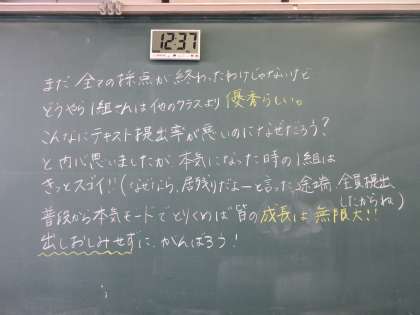 12:37
まだ 全ての採点が 終わったわけじゃないけど
どうやら 1組さんは 他のクラスより 優秀らしい。
こんなにテキスト提出率が悪いのになぜだろう?
と内心思いましたが 本気になった時の1組は
きっとスゴイ!!(なぜなら、居残りだよーと言った途端 全員提出
したからね)
普段から本気モードでとりくめば 皆の成長は 無限大!!
出しおしみせずに がんばろう!